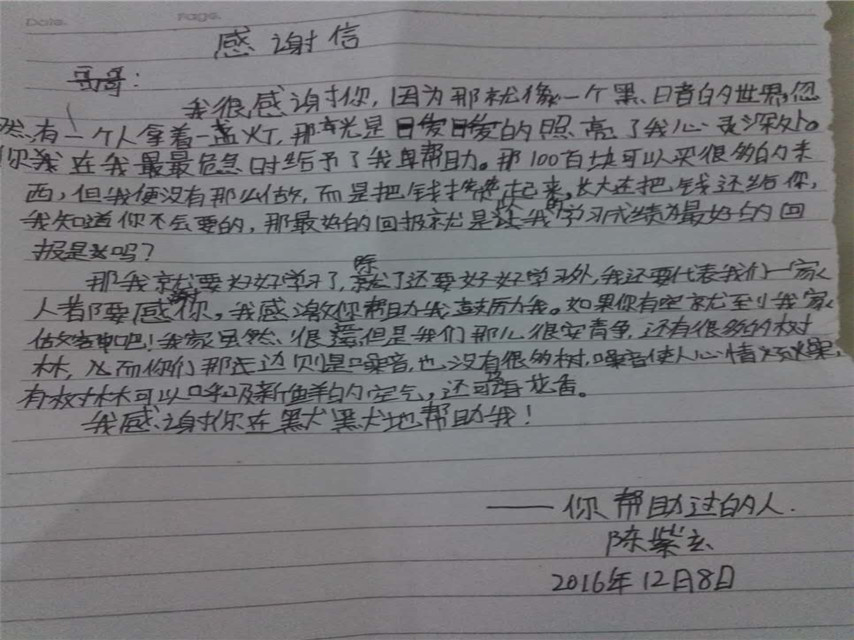 Date.
Page.
感谢信
哥哥:
我很感谢你,因为那就像一个黑暗的世界,忽
然,有一个人拿着一盏灯,那光是的照亮了我心灵深处。
你在我最最危急时给予了我帮助。那100百块可以买很多的东
西,但我便没有那么做,而是把钱攒起来,长大还把钱还给你,
我知道你不会要的,那最好的回报就是让我的学习成绩为最好的回
报是吗?
那我就要好好学习了,除了还要好好学习外,我还要代表我们一家
人都要感谢你,我感激你帮助我,鼓厉我。如果你有空就到我家
做客吧!我家虽然很但是我们那儿很安青争,还有很多的树
林,而你们那边则是噪音,也没有很多树,噪音使人心情烦燥,
有树林可以呼吸新鲜的空气,还可花香。
我感谢你在默默地帮助我!
——你帮助过的人.
陈紫玄
2016年12月8日